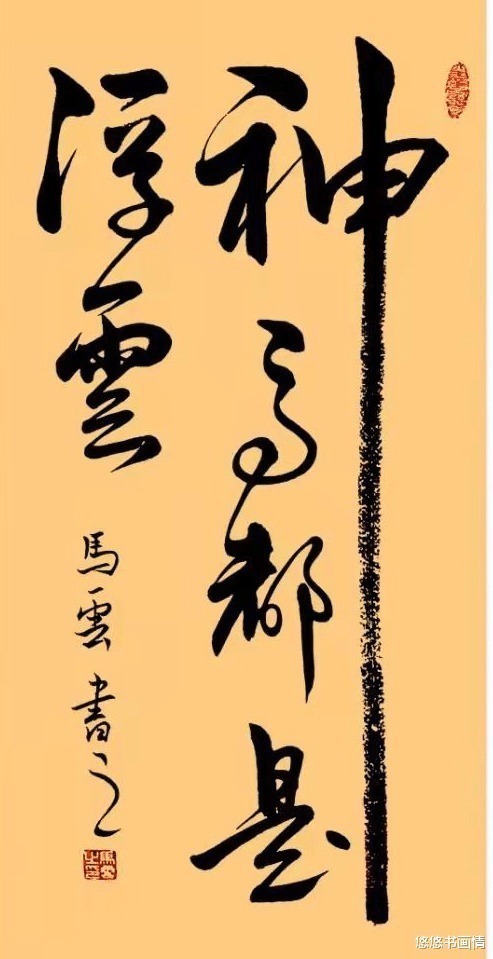 神馬都是
浮雲
馬雲書之
悠悠书画情